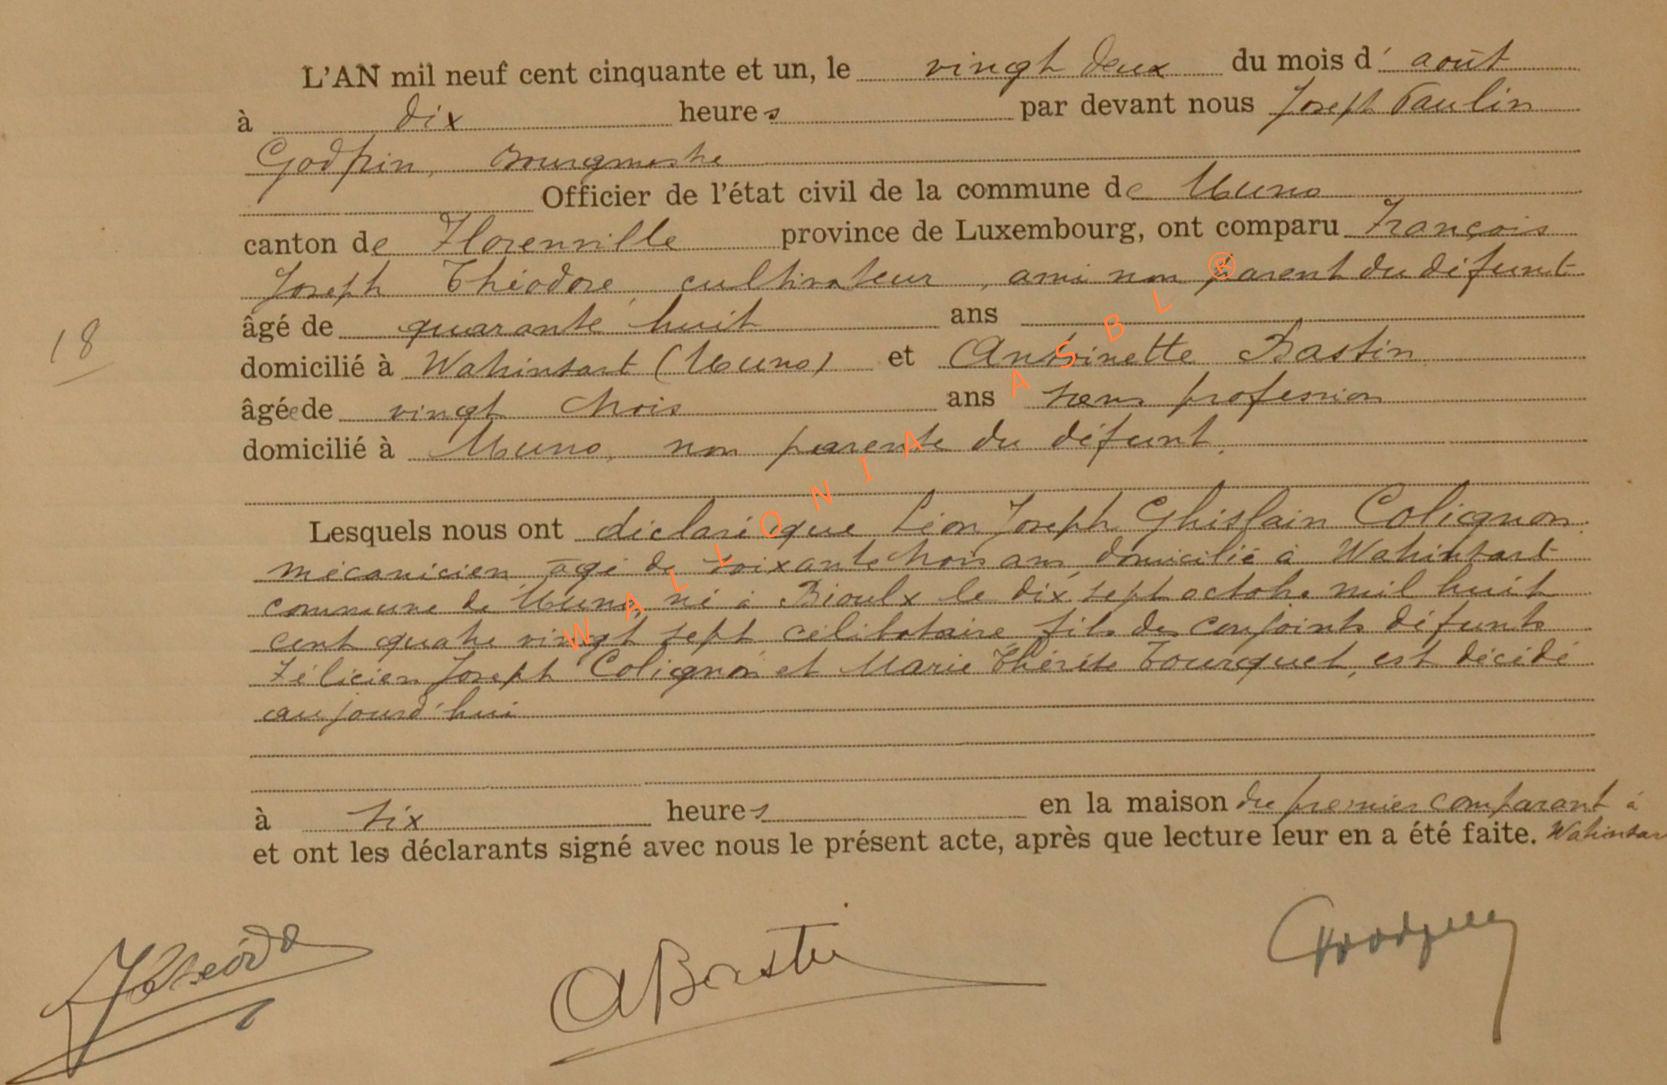 L'AN mil neuf cent cinquante et un, le vingt deux du mois d' août
à dix heures par devant nous Joseph Paulin
Godfrin, Bourgmestre
Officier de l'état civil de la commune de Muno
canton de Florenville province de Luxembourg, ont comparu François
Joseph Théodore, cultivateur, ami non parent du défunt
âgé de quarante huit ans
18
domicilié à Wahinsart (Muno) et Antoinette Bastin
âgée de vingt trois ans sans profession
domicilié à Muno, non parente du défunt.
Lesquels nous ont déclaré que Léon Joseph Ghislain Colignon
mécanicien âgé de soixante trois ans domicilié à Wahinsart
commune de Muno, né à Bioulx le dix sept octobre mil huit
cent quatre vingt sept célibataire fils des conjoints défunts
Félicien Joseph Colignon et Marie Thérèse Tourquet, est décédé
aujourd'hui
à six heures en la maison du premier comparant à
et ont les déclarants signé avec nous le présent acte, après que lecture leur en a été faite. Wahinsart
WALLONIA ASBL ®
ABastin